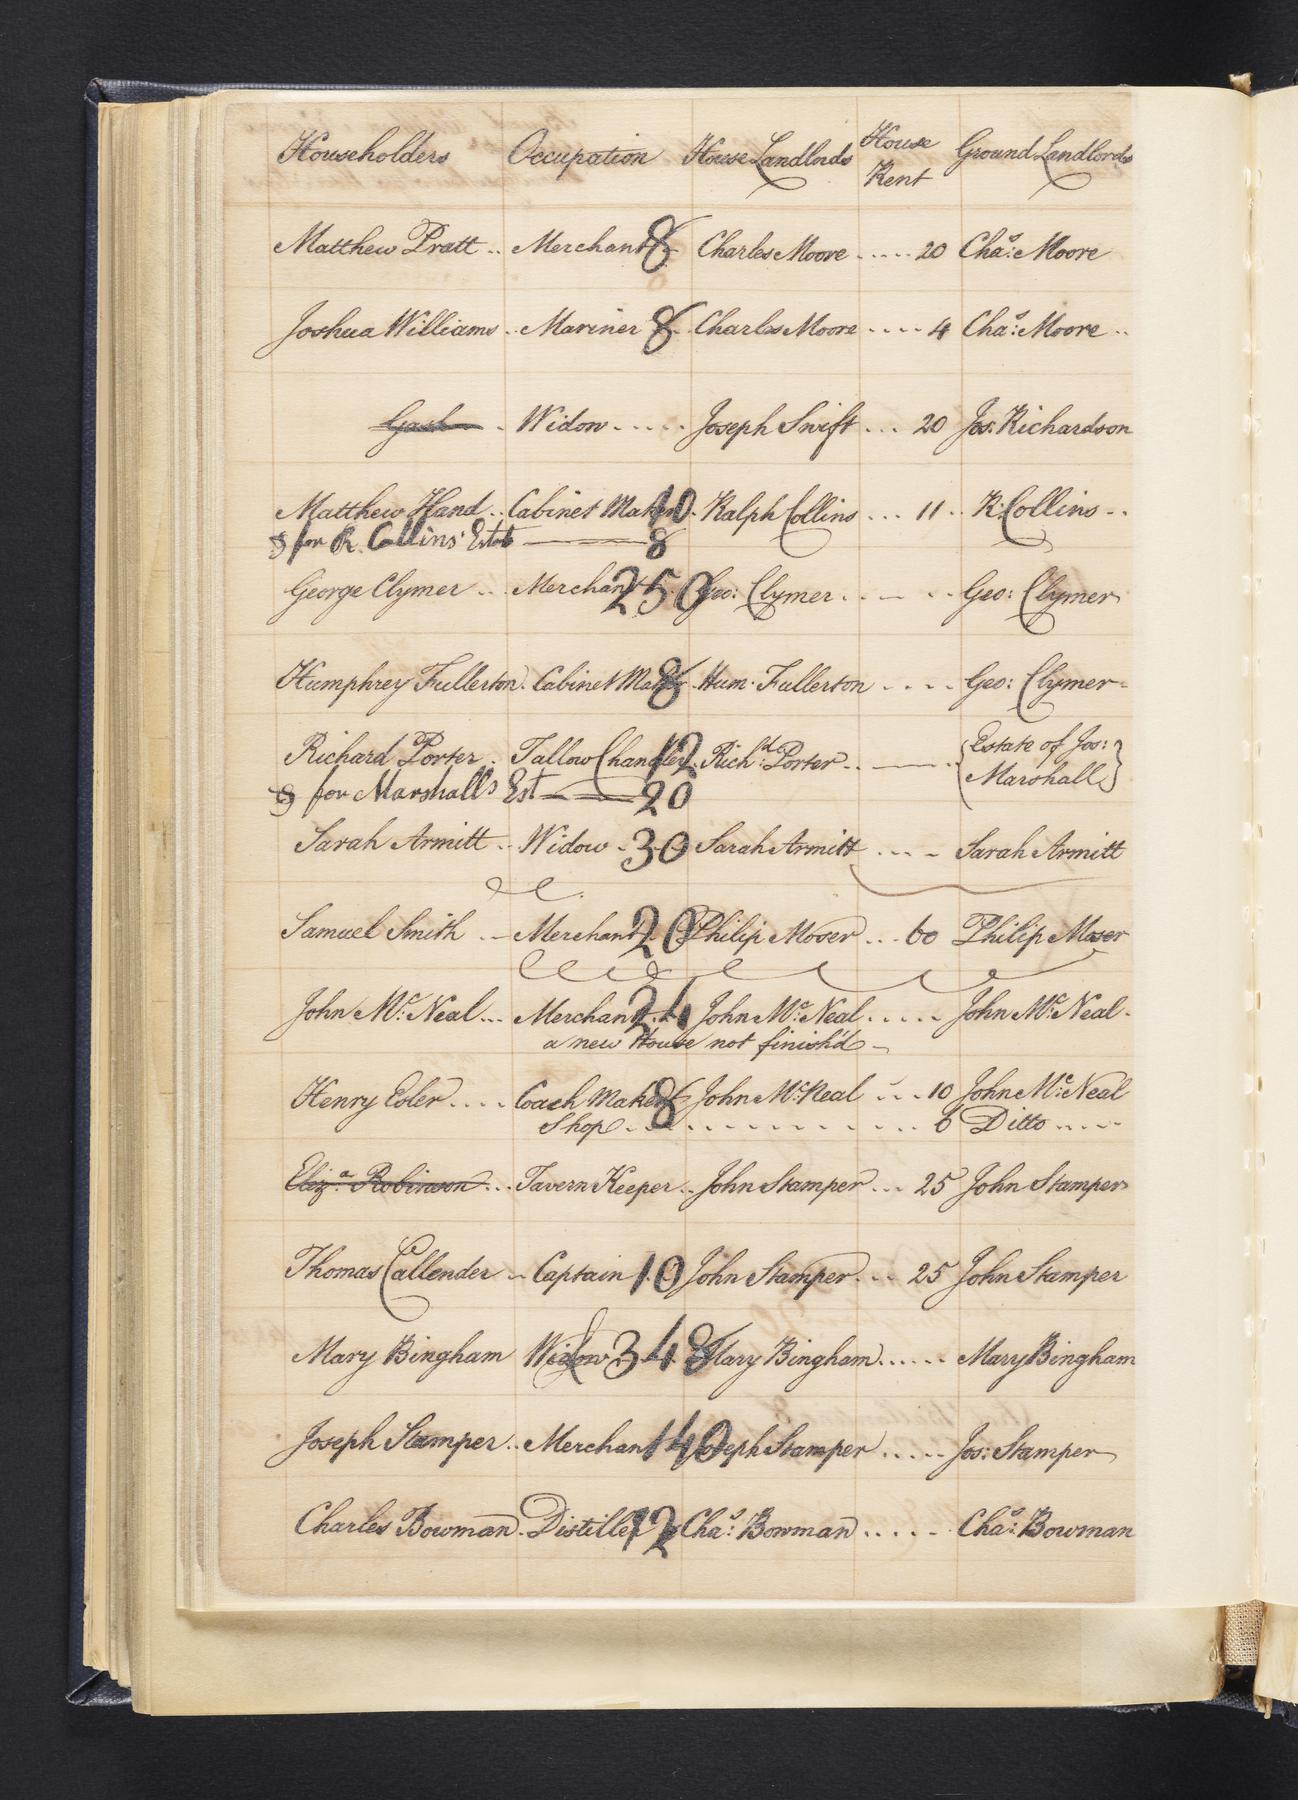 Householders Occupation House Landlords House Rent Ground Landlords
Matthew Pratt .. Merchant 8 Charles Moore ..... 20 Chas: Moore
Joshua Williams .. Mariner 8 Charles Moore .... 4 Chas: Moore ..
Gash . Widow ..... Joseph Swift ... 20 Jos: Richardson
Matthew Hand .. Cabinet Maker 10 Ralph Collins ... 11 .. R: Collins ..
for R. Collins' Estate 8
George Clymer ... Merchant 250 Geo: Clymer .. — .. Geo: Clymer
Humphrey Fullerton . Cabinet Maker 8 Hum. Fullerton .... Geo: Clymer
Richard Porter . Tallow Chandler 12 Richd: Porter .. — .. {Estate of Jos:
Marshall}
for Marshall's Est 20
Sarah Armitt .. Widow . 30 Sarah Armitt .... Sarah Armitt
Samuel Smith .. Merchant 20 Philip Moser ... 60 Philip Moser
John Mc Neal ... Merchant 24 John Mc Neal ..... John Mc Neal .
a new House not finish'd
Henry Esler .... Coach Maker 8 John Mc Neal ... 10 John Mc Neal
Shop ............ 6 Ditto .....
Eliza. Robinson ... Tavern Keeper .. John Stamper ... 25 John Stamper
Thomas Callender .. Captain 10 John Stamper ... 25 John Stamper
Mary Bingham Widow 348 Mary Bingham ...... Mary Bingham
Joseph Stamper .. Merchant 140 Joseph Stamper ..... Jos: Stamper
Charles Bowman . Distiller 12 Chas: Bowman ..... Chas: Bowman